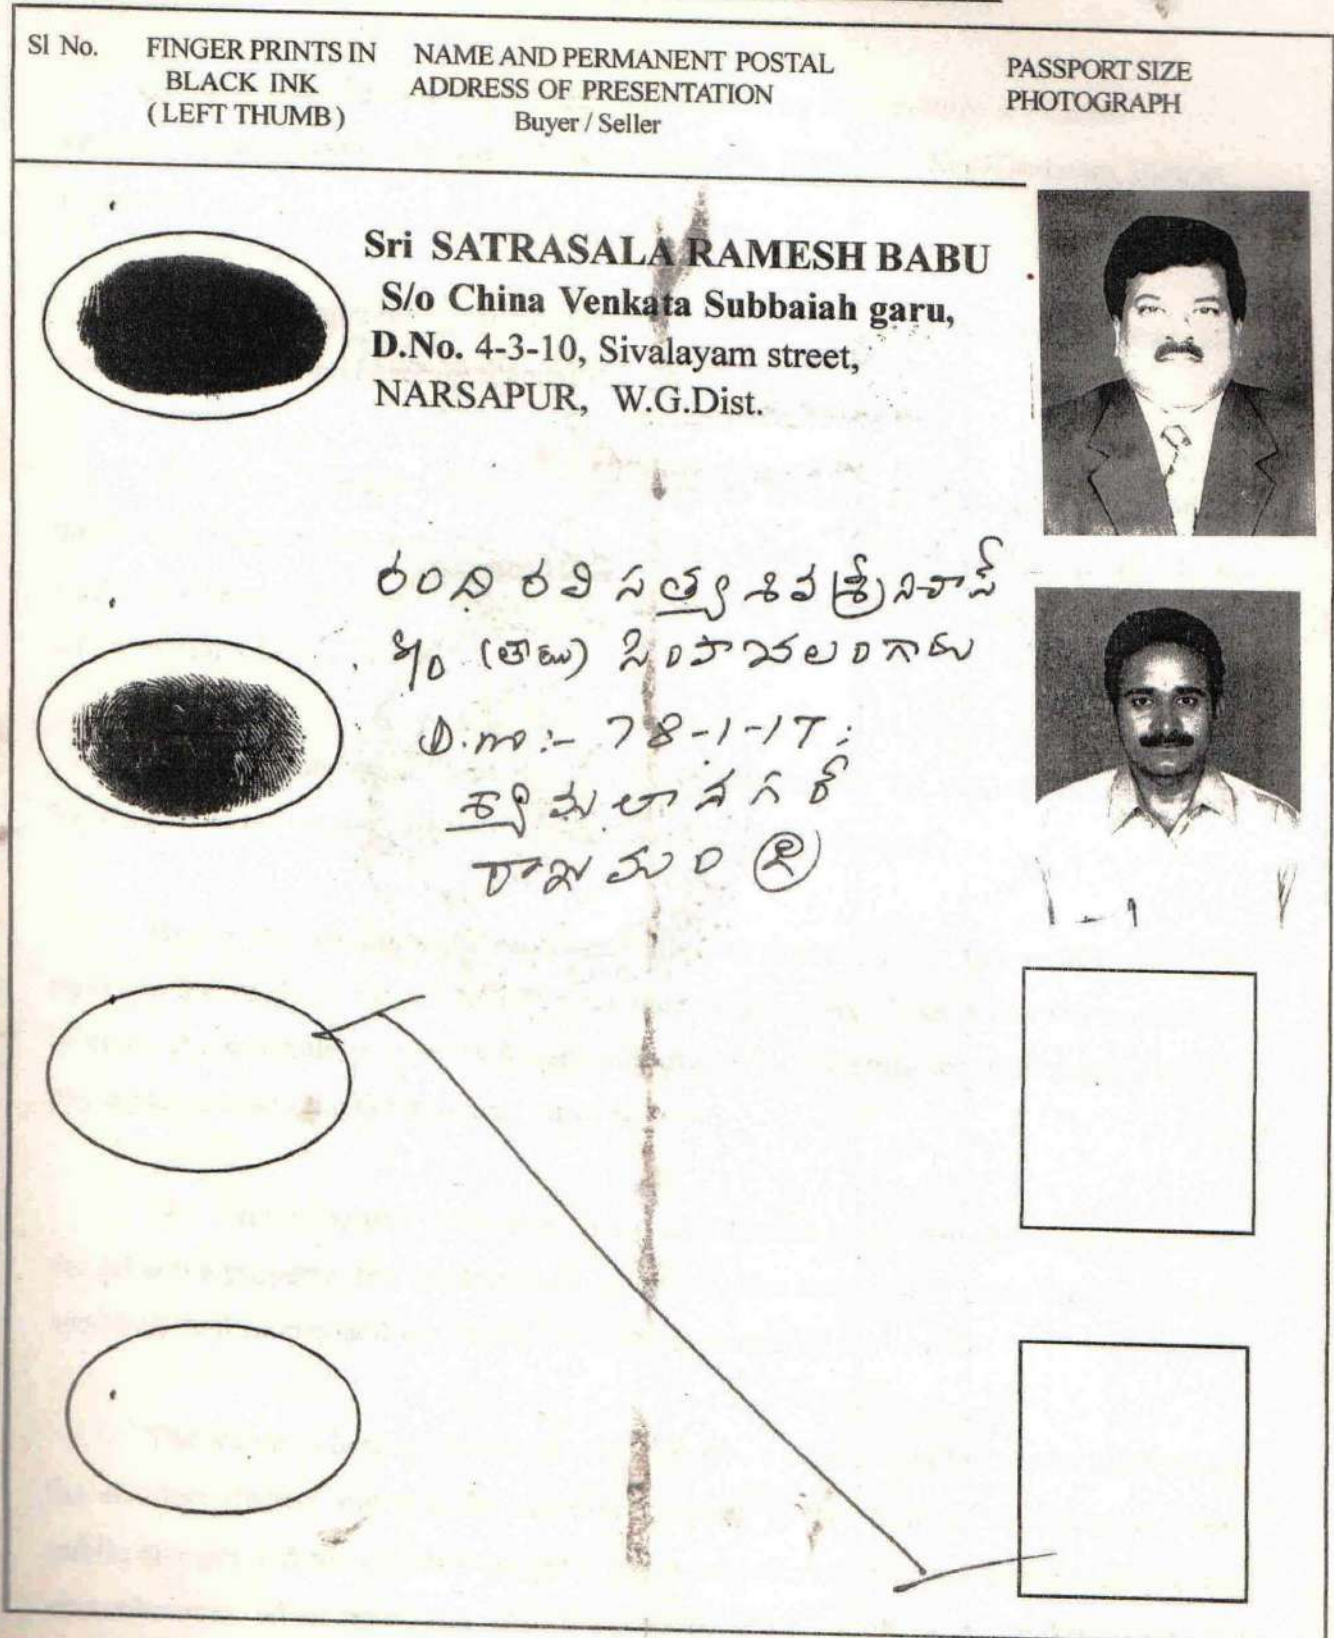 Sl No. FINGER PRINTS IN BLACK INK ( LEFT THUMB ) NAME AND PERMANENT POSTAL ADDRESS OF PRESENTATION Buyer / Seller PASSPORT SIZE PHOTOGRAPH
Sri SATRASALA RAMESH BABU
S/o China Venkata Subbaiah garu,
D.No. 4-3-10, Sivalayam street,
NARSAPUR, W.G.Dist.
రంది రవి సత్య శివ శ్రీనివాస్
S/o సింహాచలంగారు
D.no:- 78-1-17;
శ్యామలా నగర్
రాజమండ్రి